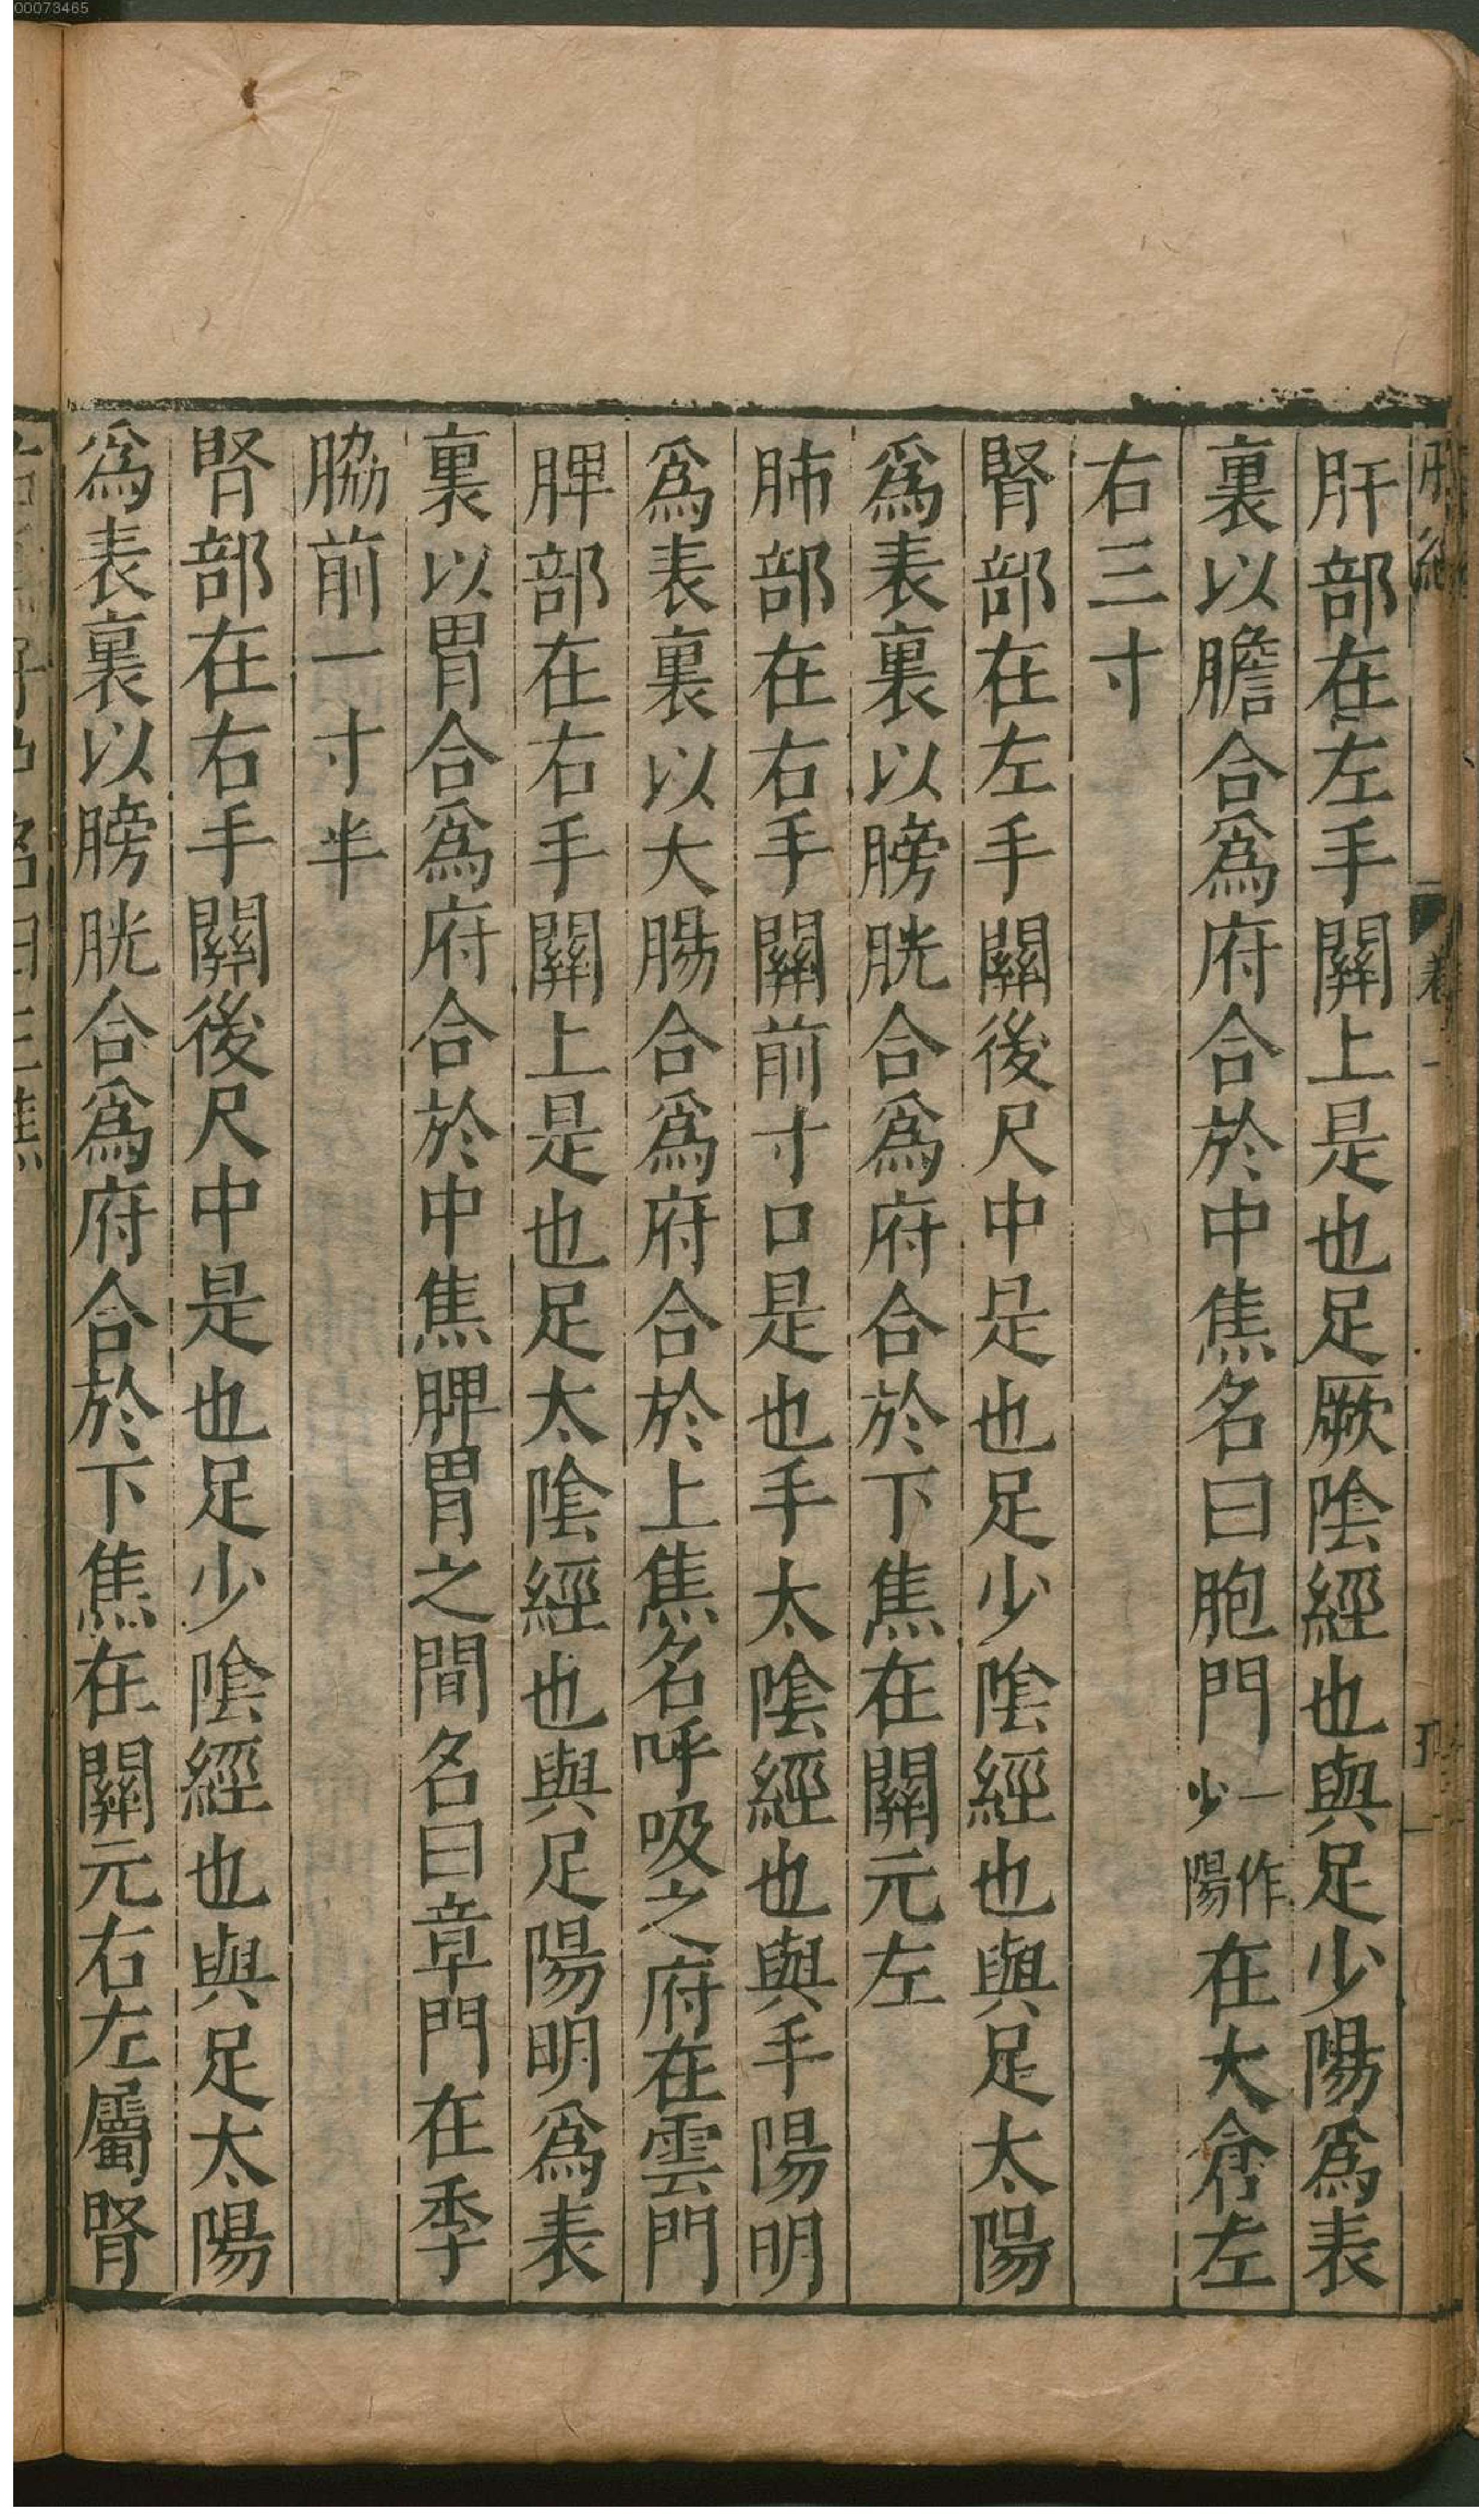 00073465
肝部在左手關上是也足厥陰經也與足少陽爲表
裏以膽合爲府合於中焦名曰胞門一作少陽在大倉左
右三寸
腎部在左手關後尺中是也足少陰經也與足太陽
爲表裏以膀胱合爲府合於下焦在關元左
肺部在右手關前寸口是也手太陰經也與手陽明
爲表裏以大腸合爲府合於上焦名呼吸之府在雲門
脾部在右手關上是也足太陰經也與足陽明爲表
裏以胃合爲府合於中焦脾胃之間名曰章門在季
脇前一寸半
腎部在右手關後尺中是也足少陰經也與足太陽
爲表裏以膀胱合爲府合於下焦在關元右左屬腎